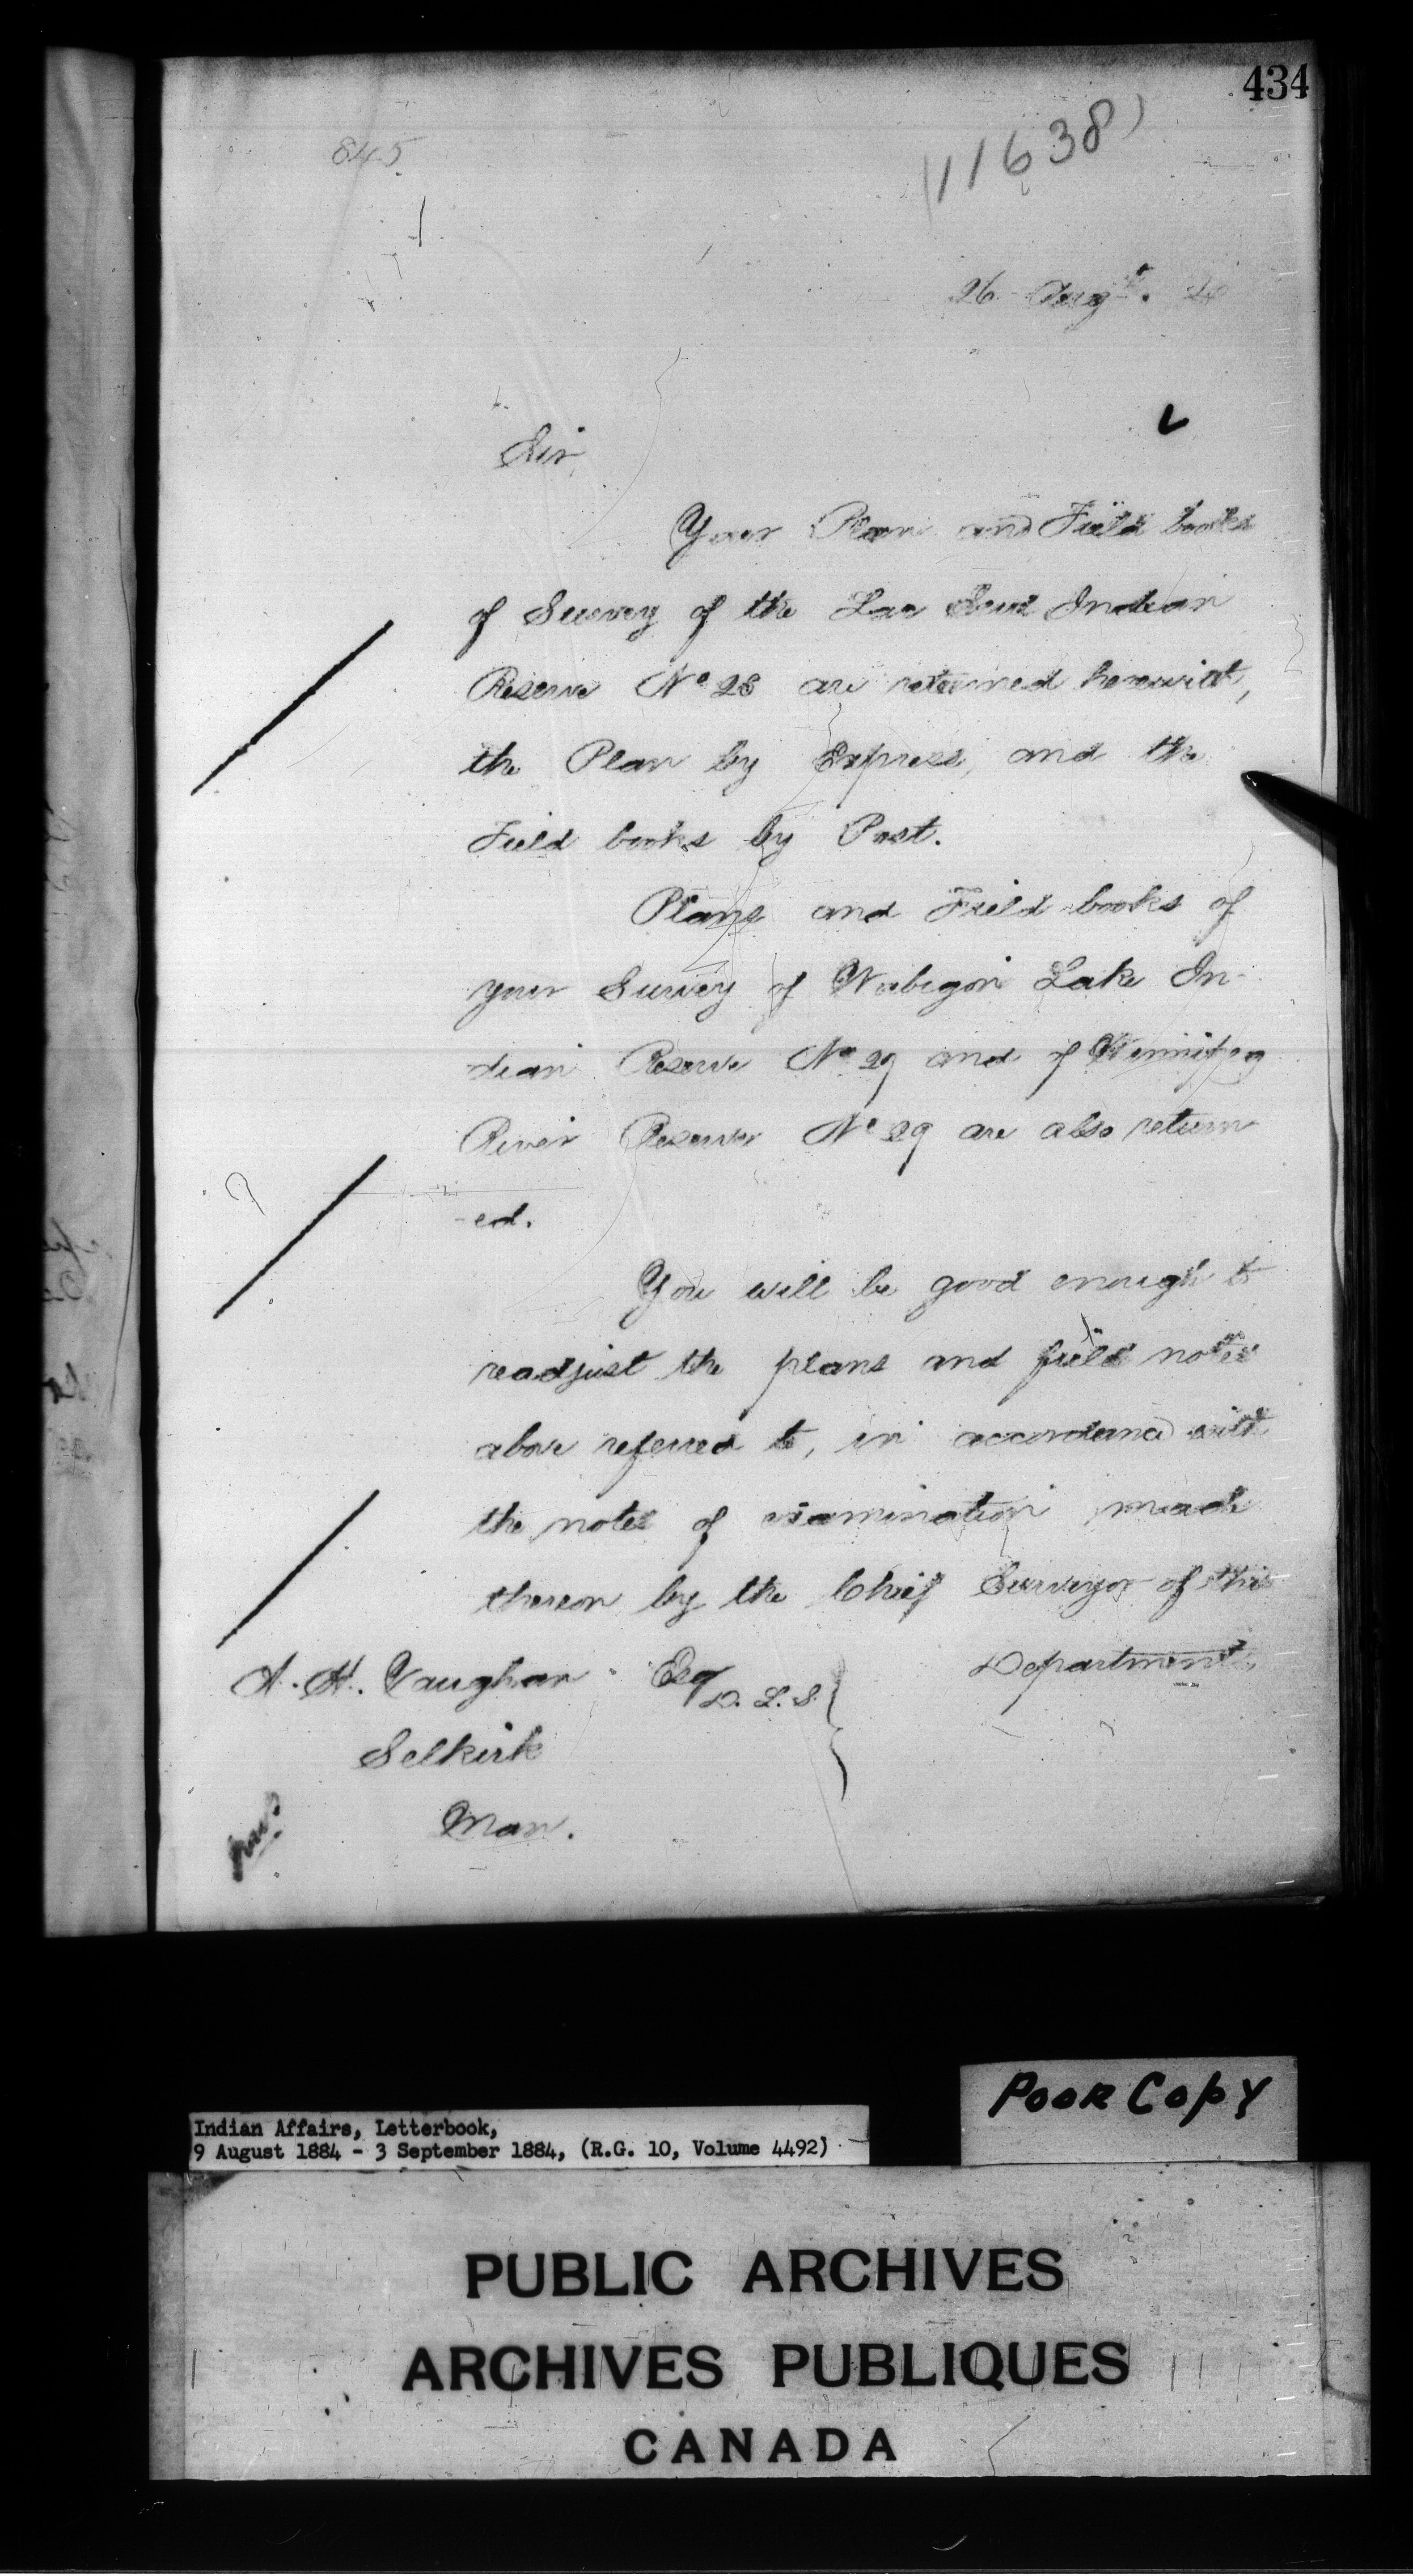 434
845
11638
26 Augt. 84
Sir,
Your Plan and Field books
of Survey of the Lac Seul Indian
Reserve No 28 are returned herewith,
the Plan by Express, and the
Field books by Post.
Plans and Field books of
your Survey of Wabigon Lake In-
dian Reserve No 27 and of Winnipeg
River Reserve No 29 are also return
-ed.
You will be good enough to
readjust the plans and field notes
above referred to, in accordance with
the notes of examination made
thereon by the Chief Surveyor of this
Department.
A. H. Vaughan Esq D. L. S.
Selkirk
Man.
Poor Copy
Indian Affairs, Letterbook,
9 August 1884 - 3 September 1884, (R.G. 10, Volume 4492)
PUBLIC ARCHIVES
ARCHIVES PUBLIQUES
CANADA